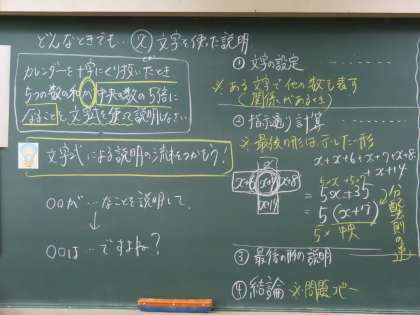 どんなときでも‥ 文 文字を使った説明
カレンダーを十字にくり抜いたとき
5つの数の和が中央の数の5倍に
なることを、文字式を使って説明しなさい
文字式による説明の流れをつかもう!
○○が…なことを説明して、
↓
○○は…ですよね?
① 文字の設定
※ある文字で他の数も表す
(関係があるとき)
② 指示通り計算
※最後の形は示した形
x+x+6+x+7+x+8
+x+14
x
x+6 x+7 x+8
x+14
= 5x+35
= 5(x+7)
5×中央
分配法則の逆
③ 最後の形の説明
④ 結論 ※問題コピー